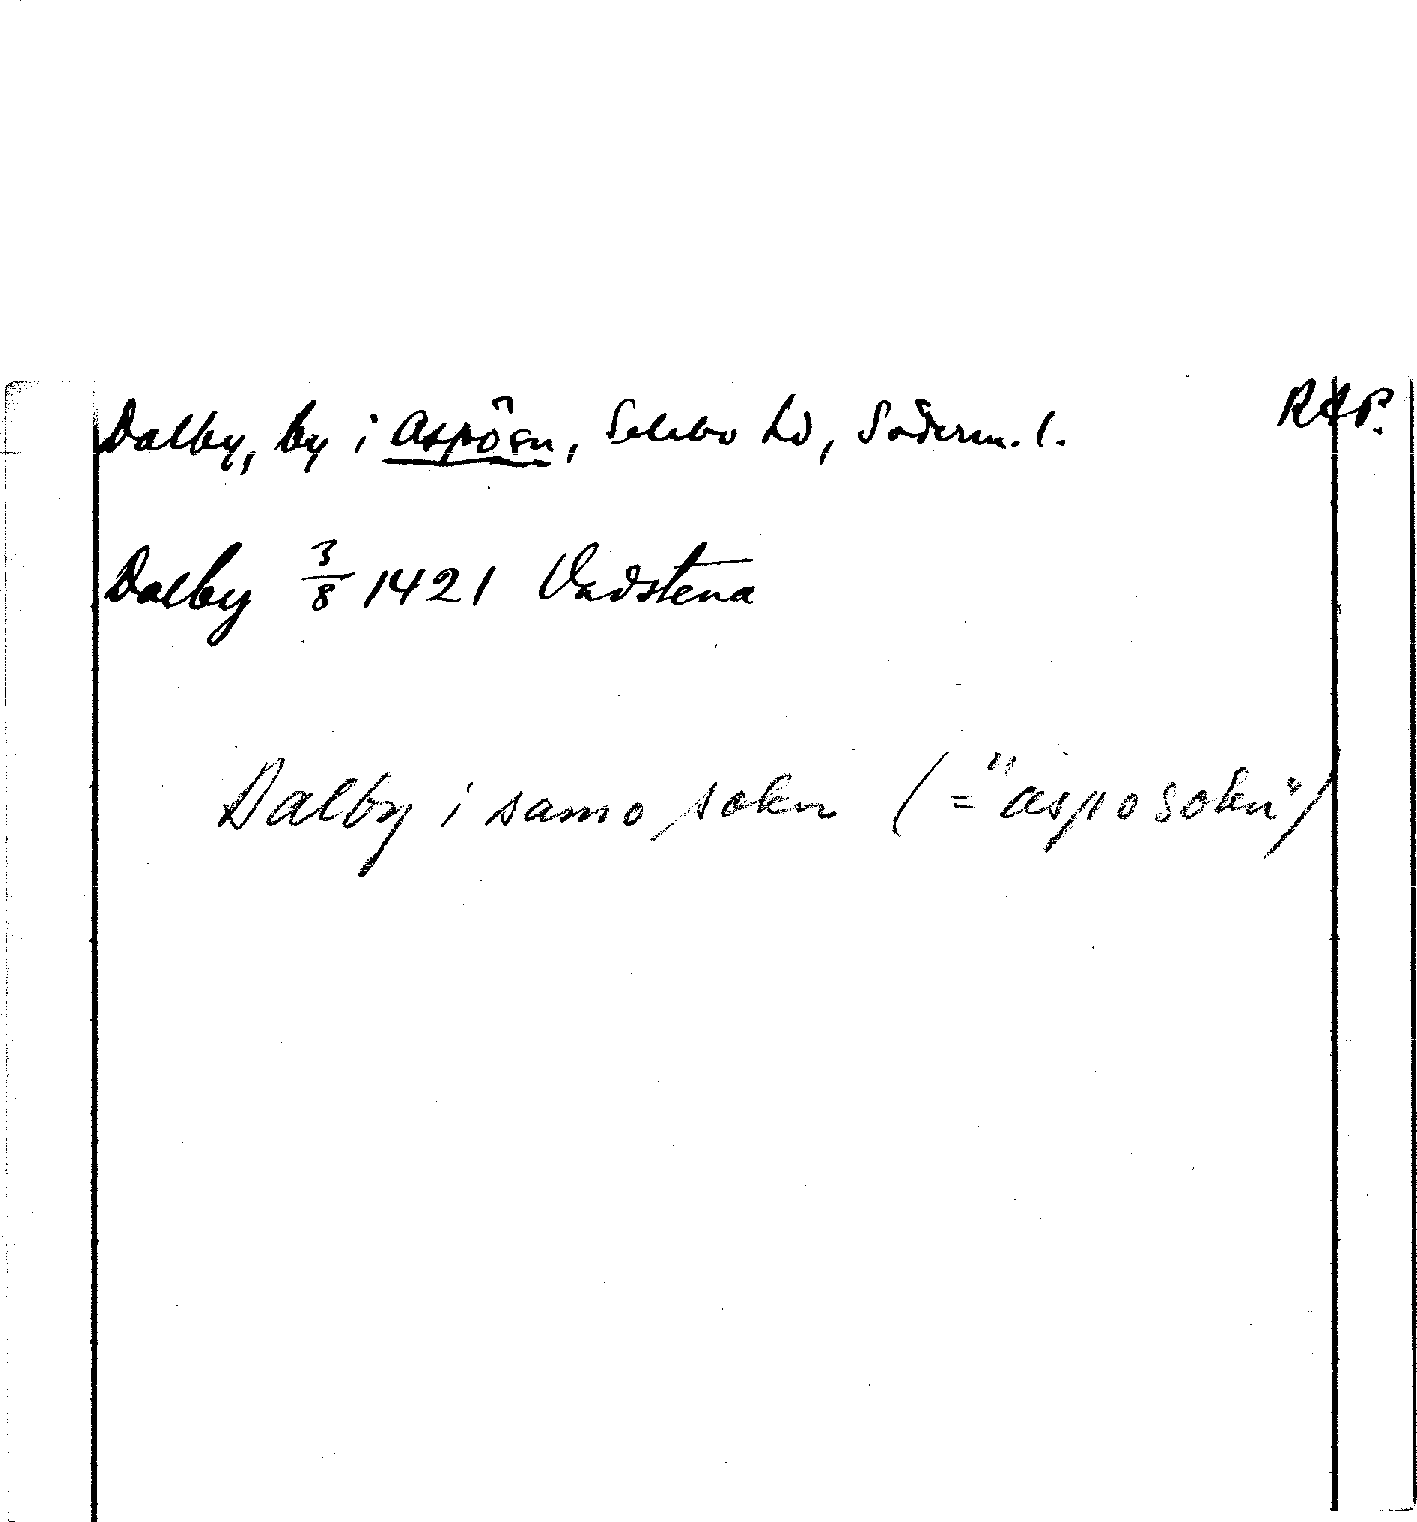 Dalby, by i Aspö sn, Selebo hd, Söderm. l. RAP.
Dalby 3/8 1421 Vadstena
Dalby i samo sokn (= "aspo sokn")